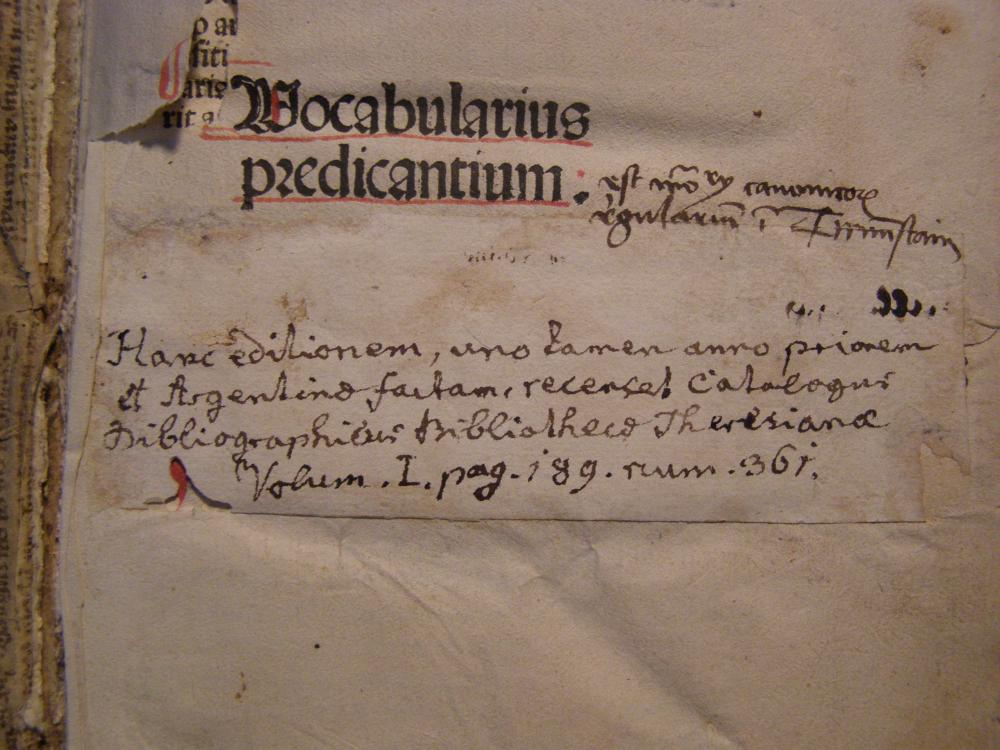 p ai
siti
aris
rit a
Vocabularius
predicantium :
est canonicorꝝ
regulariū ī Tirnnstain
Hanc editionem, uno tamen anno priorem
et Argentinæ factam, recenset Catalogus
Bibliographicus Bibliothecæ Theresianæ
Volum. I. pag. 189. num. 361.